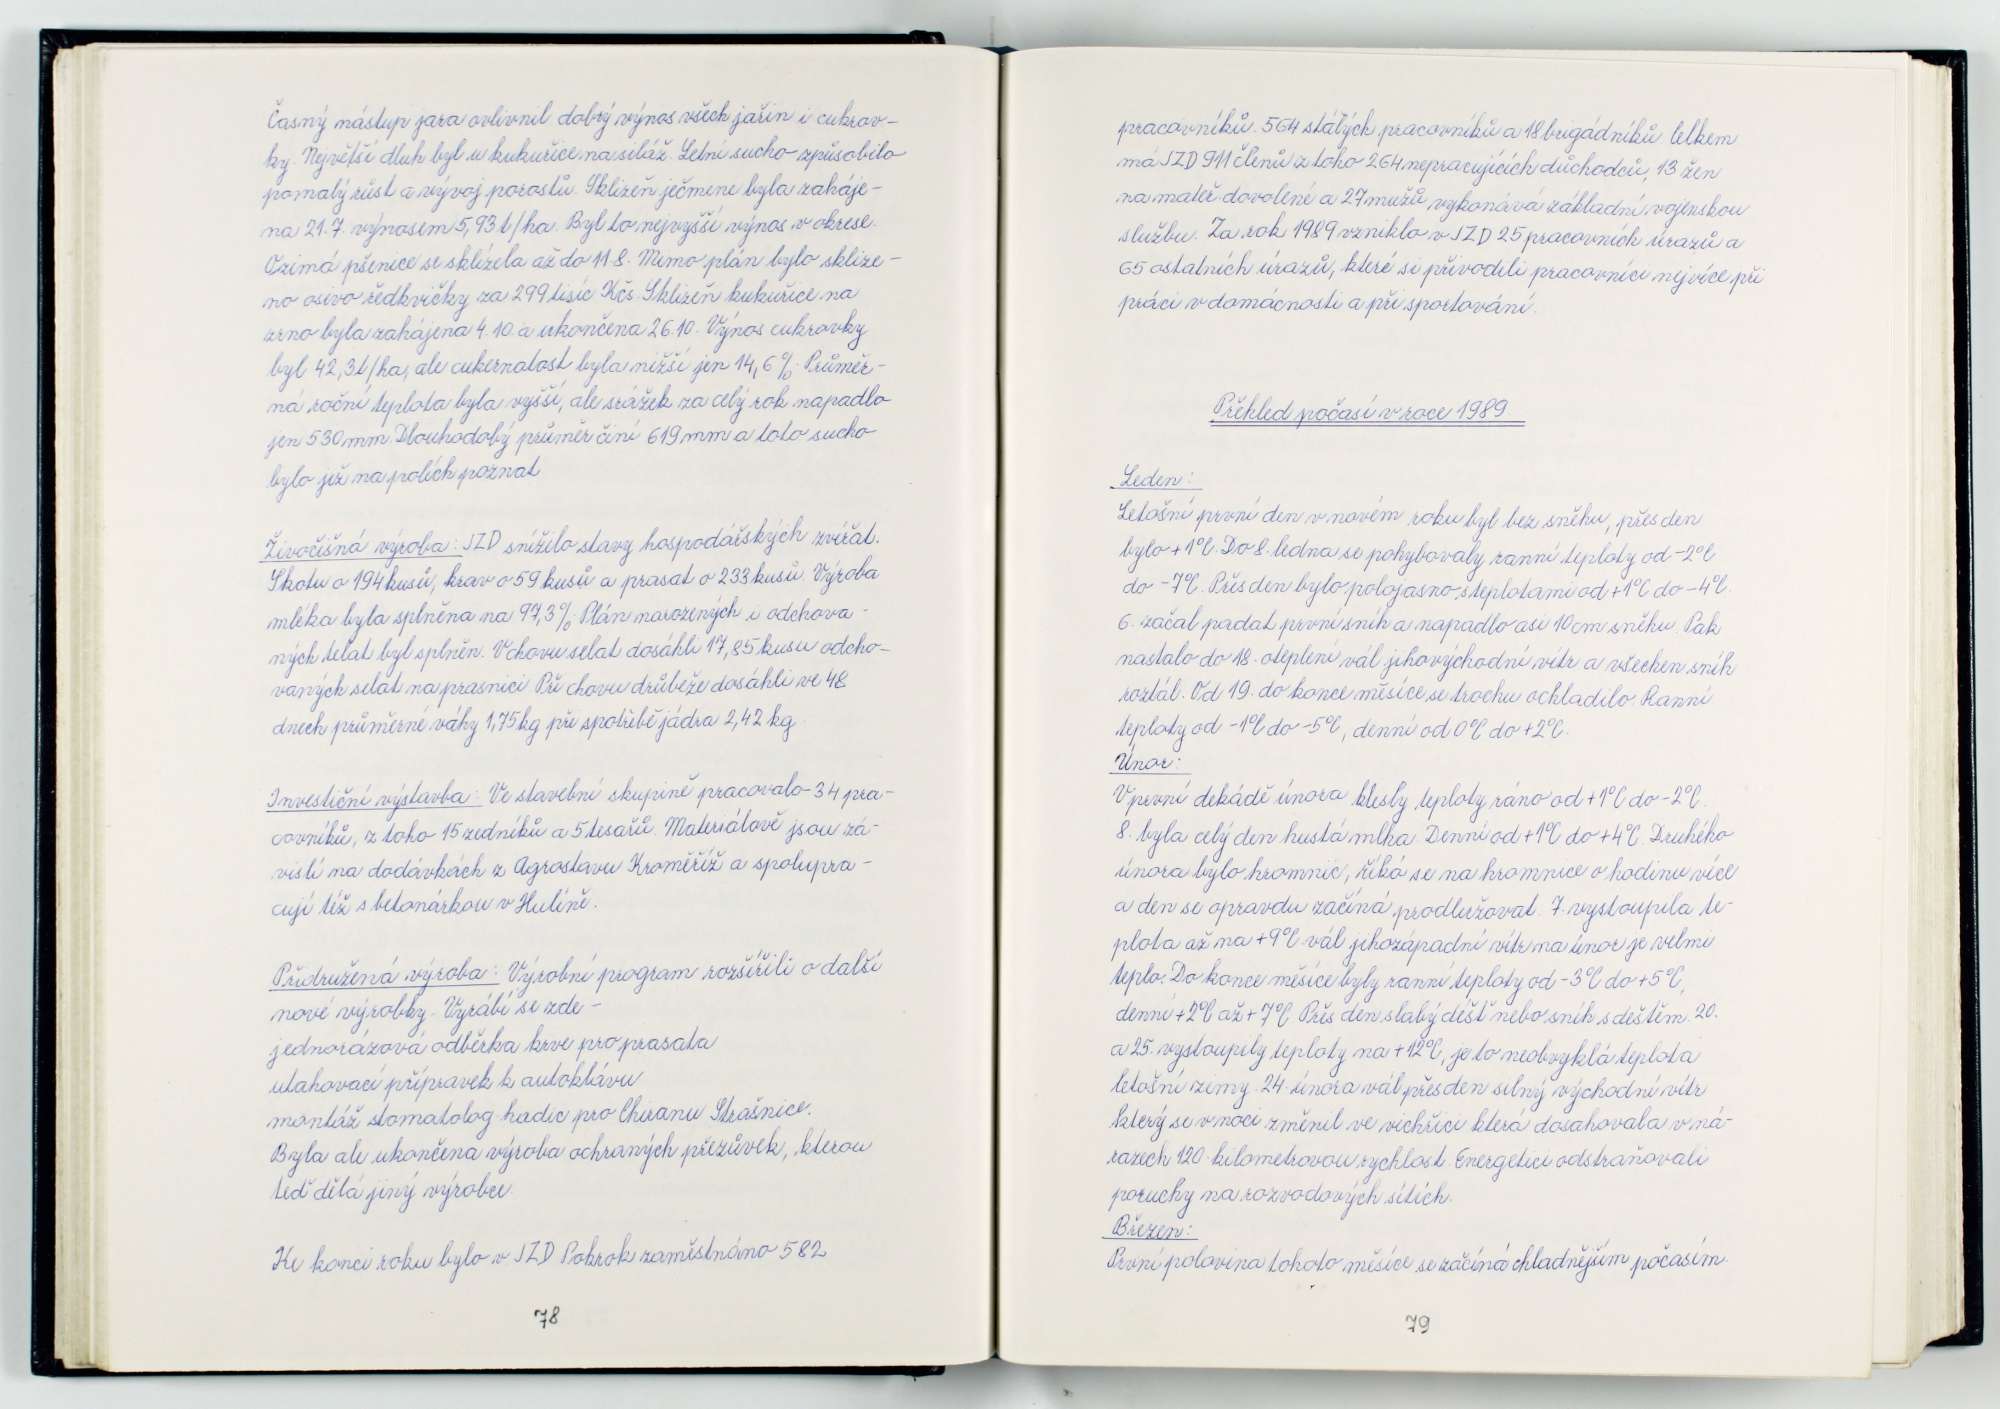 Časný nástup jara ovlivnil dobrý výnos všech jařin i cukrov-
ky. Největší dluh byl u kukuřice na siláž. Letní sucho způsobilo
pomalý růst a vývoj porostů. Sklizeň ječmene byla zaháje-
na 21.7. výnosem 5,93 t/ha. Byl to nejvyšší výnos v okrese.
Ozimá pšenice se sklízela až do 11.8. Mimo plán bylo sklize-
no osivo ředkvičky za 299 tisíc Kčs. Sklizeň kukuřice na
zrno byla zahájena 4.10. a ukončena 26.10. Výnos cukrovky
byl 42,3t/ha, ale cukernatost byla nižší jen 14,6%. Průměr-
ná roční teplota byla vyšší, ale srážek za celý rok napadlo
jen 530 mm. Dlouhodobý průměr činí 619 mm a toto sucho
bylo již na polích poznat
Živočišná výroba: JZD snížilo stavy hospodářských zvířat.
Skotu o 194 kusů, krav o 59 kusů a prasat o 233 kusů. Výroba
mléka byla splněna na 97,3%. Plán narozených i odchova-
ných telat byl splněn. V chovu selat dosáhli 17,85 kusu odcho-
vaných selat na prasnici Při chovu drůbeže dosáhli ve 48
dnech průměrné váhy 1,75 kg při spotřebě jádra 2,42 kg.
Investiční výstavba: Ve stavební skupině pracovalo 34 pra-
covníků, z toho 15 zedníků a 5 tesařů. Materiálově jsou zá-
vislí na dodávkách z Agrostavu Kroměříž a spolupra-
cují též s betonárkou v Hulíně.
Přidružená výroba: Výrobní program rozšířili o další
nové výrobky. Vyrábí se zde-
jednorázová odběrka krve pro prasata
utahovací přípravek k autoklávu
montáž stomatolog. hadic pro Chiranu Strašnice.
Byla ale ukončena výroba ochraných přezůvek, kterou
teď dělá jiný výrobce.
Ke konci roku bylo v JZD Pokrok zaměstnáno 582
78
pracovníků. 564 stálých pracovníků a 18 brigádníků. Celkem
má JZD 911 členů z toho 264 nepracujících důchodců, 13 žen
na mateř. dovolené a 27 mužů vykonává základní vojenskou
službu. Za rok 1989 vzniklo v JZD 25 pracovních úrazů a
65 ostatních úrazů, které si přivodili pracovníci nejvíce při
práci v domácnosti a při sportování.
Přehled počasí v roce 1989
Leden:
Letošní první den v novém roku byl bez sněhu, přes den
bylo +1°C. Do 8. ledna se pohybovaly ranní teploty od -2°C
do -7°C. Přes den bylo polojasno s teplotami od +1°C do -4°C.
6. začal padat první sníh a napadlo asi 10 cm sněhu. Pak
nastalo do 18. oteplení vál jihovýchodní vítr a všecken sníh
roztál. Od 19. do konce měsíce se trochu ochladilo. Ranní
teploty od -1°C do -5°C, denní od 0°C do +2°C.
Únor:
V první dekádě února klesly teploty ráno od +1°C do -2°C.
8. byla celý den hustá mlha. Denní od +1°C do +4°C. Druhého
února bylo hromnic, říká se na hromnice o hodinu více
a den se opravdu začíná prodlužovat. 7. vystoupila te-
plota až na +9°C vál jihozápadní vítr na únor je velmi
teplo. Do konce měsíce byly ranní teploty od -3°C do +5°C,
denní +2°C až +7°C. Přes den slabý déšť nebo sníh s deštěm. 20.
a 25. vystoupily teploty na +12°C, je to neobvyklá teplota
letošní zimy. 24. února vál přes den silný východní vítr
který se v noci změnil ve vichřici která dosahovala v ná-
razech 120 kilometrovou rychlost. Energetici odstraňovali
poruchy na rozvodových sítích.
Březen:
První polovina tohoto měsíce se začíná chladnějším počasím.
79